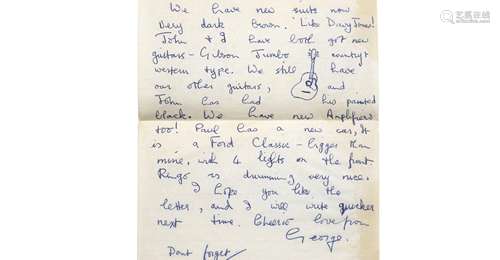 We have new suits now
Very dark Brown. 'Like Davy Jones!
John & I have both got new
guitars - Gibson Jumbo country &
western type. We still have
our other guitars, and
John has had his painted
black. We have new Amplifiers
too! Paul has a new car, It
is a Ford Classic - bigger than
mine, with 4 lights on the front
Ringo is drumming very nice.
I hope you like the
letter, and I will write quicker
next time. Cheerio love from
George.
Dont forget
艺典中国
yidianchina.com